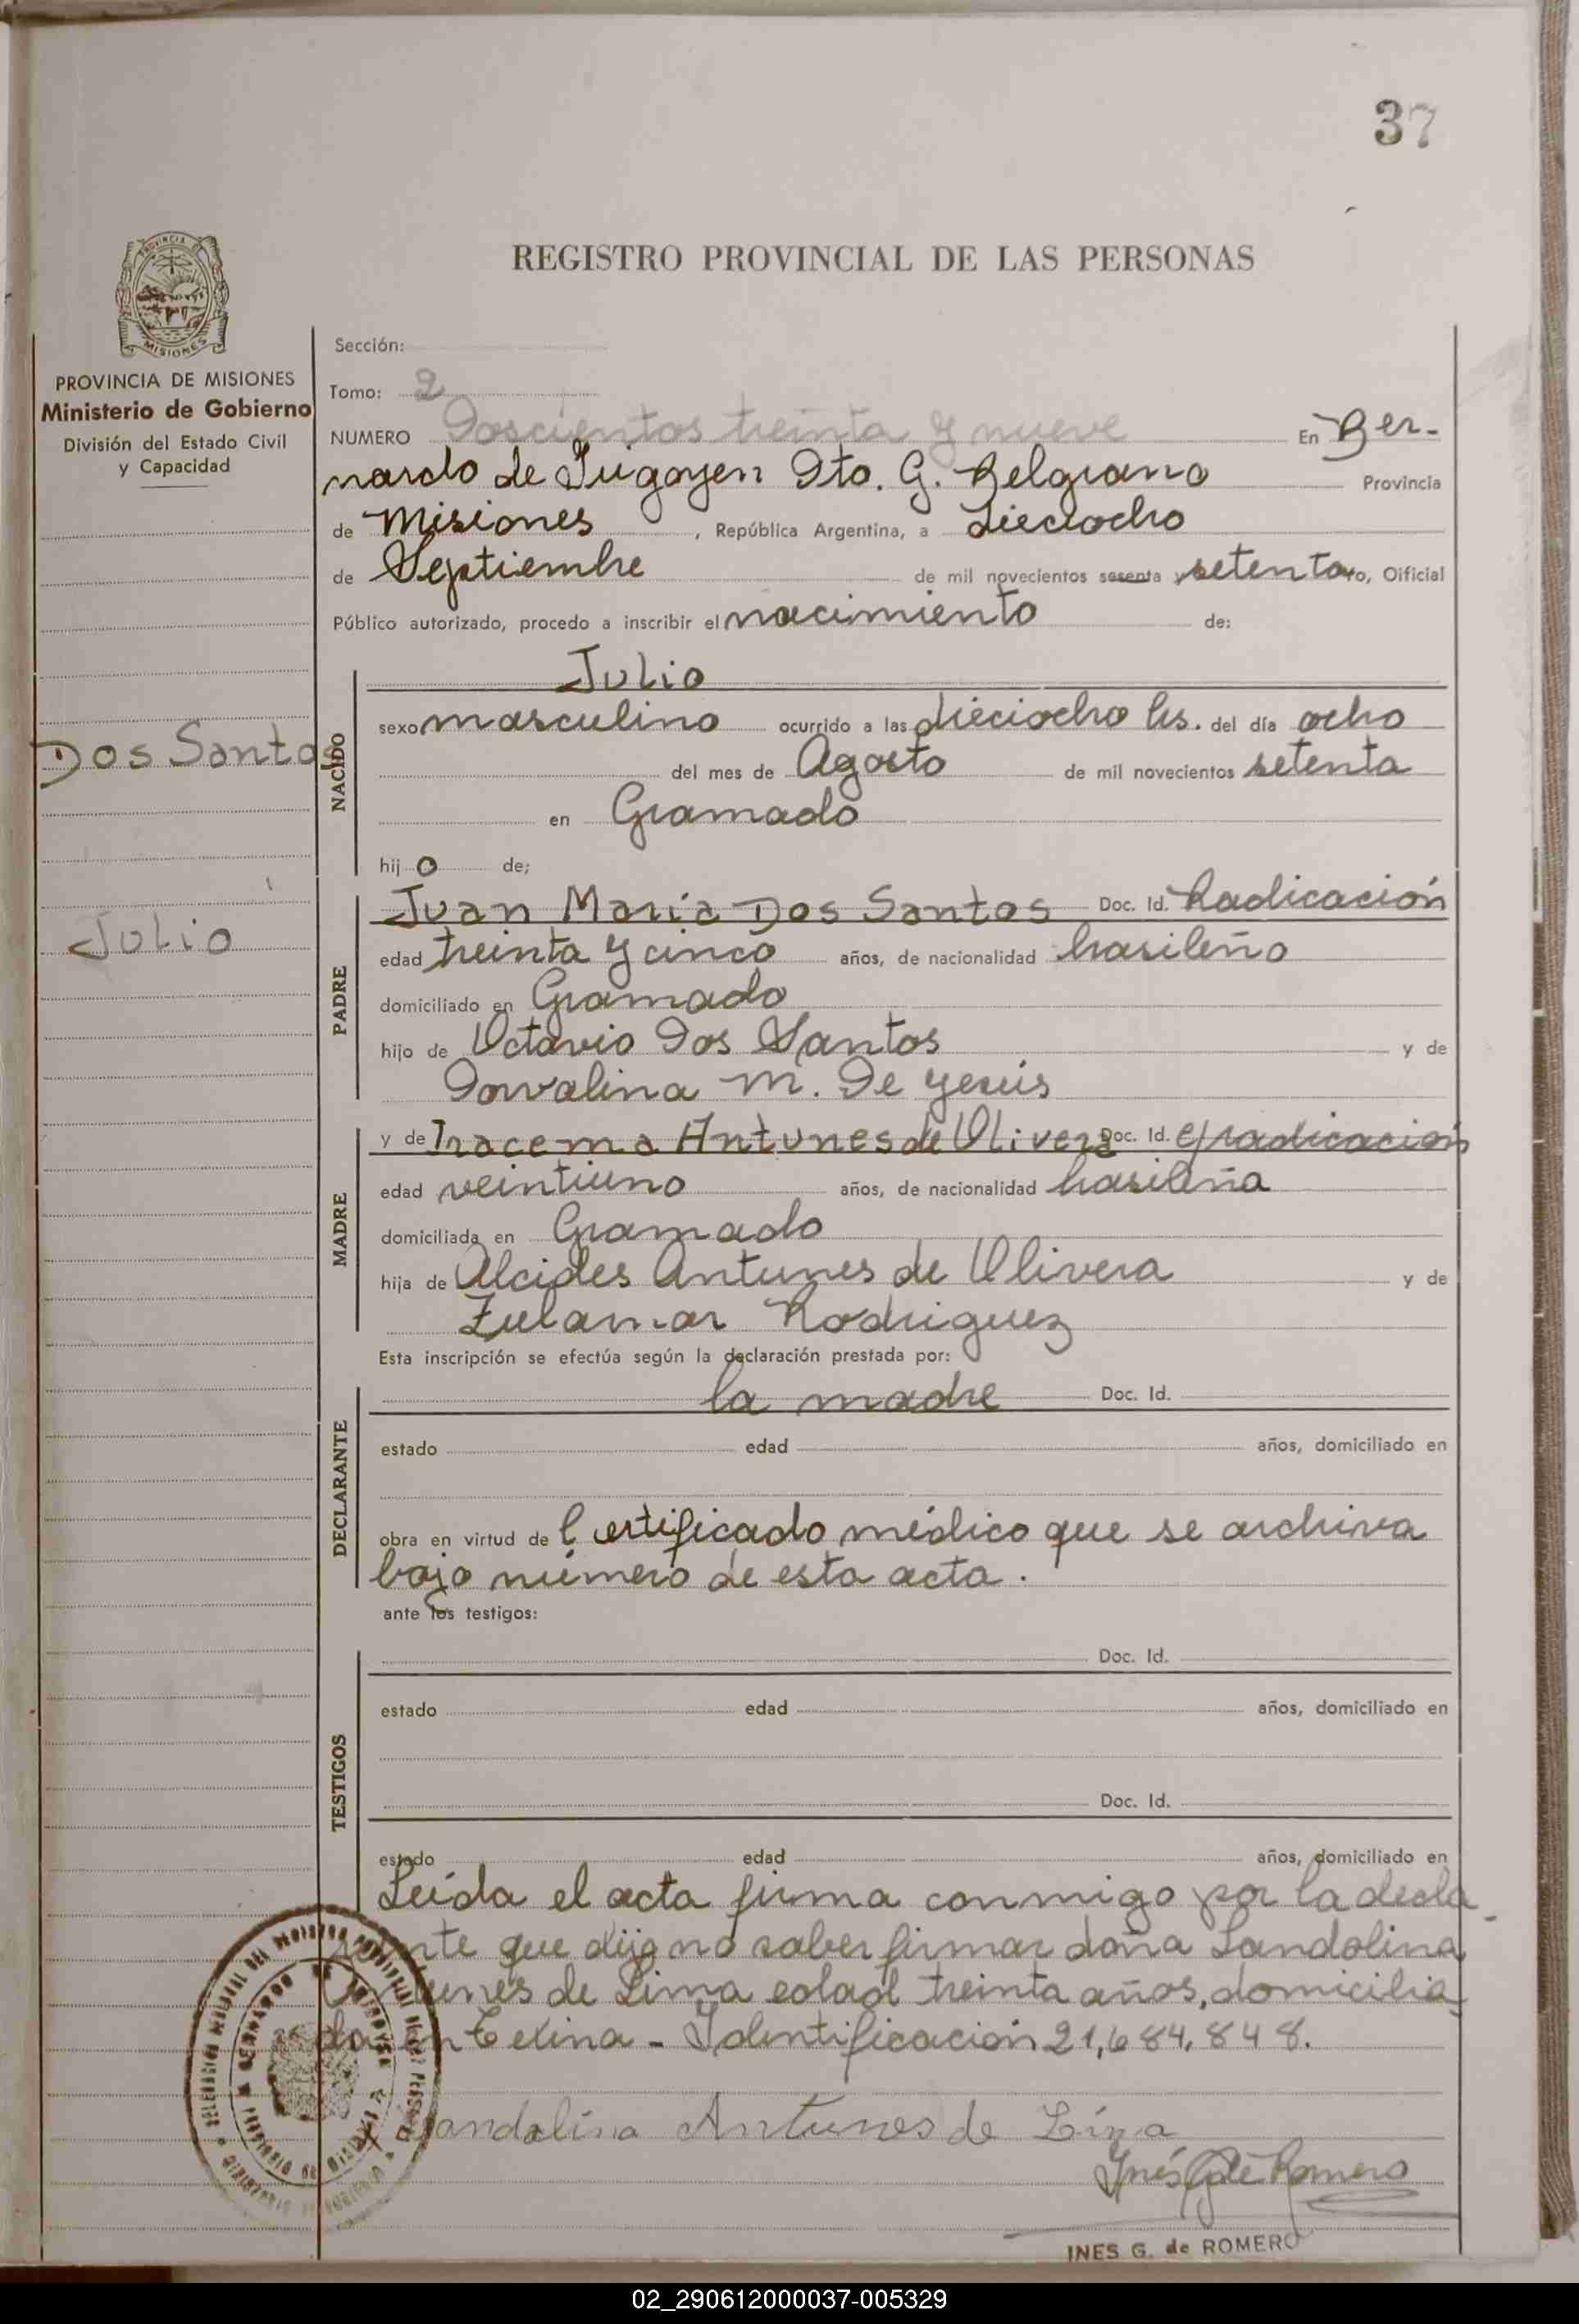 37
REGISTRO PROVINCIAL DE LAS PERSONAS
PROVINCIA DE
MISIONES
PROVINCIA DE MISIONES
Ministerio de Gobierno
División del Estado Civil
y Capacidad
Dos Santos
Julio
Sección:
Tomo: 2
NUMERO Doscientos treinta y nueve En Ber-
nardo de Irigoyen Dto. G. Belgrano Provincia
de Misiones , República Argentina, a dieciocho
de Septiembre de mil novecientos sesenta y setenta yo, Oificial
Público autorizado, procedo a inscribir el nacimiento de:
Julio
NACIDO
sexo masculino ocurrido a las dieciocho hs. del día ocho
del mes de Agosto de mil novecientos setenta
en Gramado
hijo de;
PADRE
Juan María Dos Santos Doc. Id. Radicación
edad treinta y cinco años, de nacionalidad brasileño
domiciliado en Gramado
hijo de Octavio Dos Santos y de
Dorvalina M. De Yesús
MADRE
y de Iracema Antunes de Olivera Doc. Id. c/radicación
edad veintiuno años, de nacionalidad brasileña
domiciliada en Gramado
hija de Alcides Antunes de Olivera y de
Zulamar Rodriguez
Esta inscripción se efectúa según la declaración prestada por:
DECLARANTE
la madre Doc. Id.
estado edad años, domiciliado en
obra en virtud de Certificado médico que se archiva
bajo número de esta acta.
ante los testigos:
TESTIGOS
Doc. Id.
estado edad años, domiciliado en
Doc. Id.
estado edad años, domiciliado en
Leída el acta firma conmigo por la decla-
rante que dijo no saber firmar doña Landolina
Antunes de Lima edad treinta años, domicilia-
da en - Identificación 21,684,848.
Landolina Antunes de Lima
Inés G. de Romero
INES G. de ROMERO
02_290612000037-005329